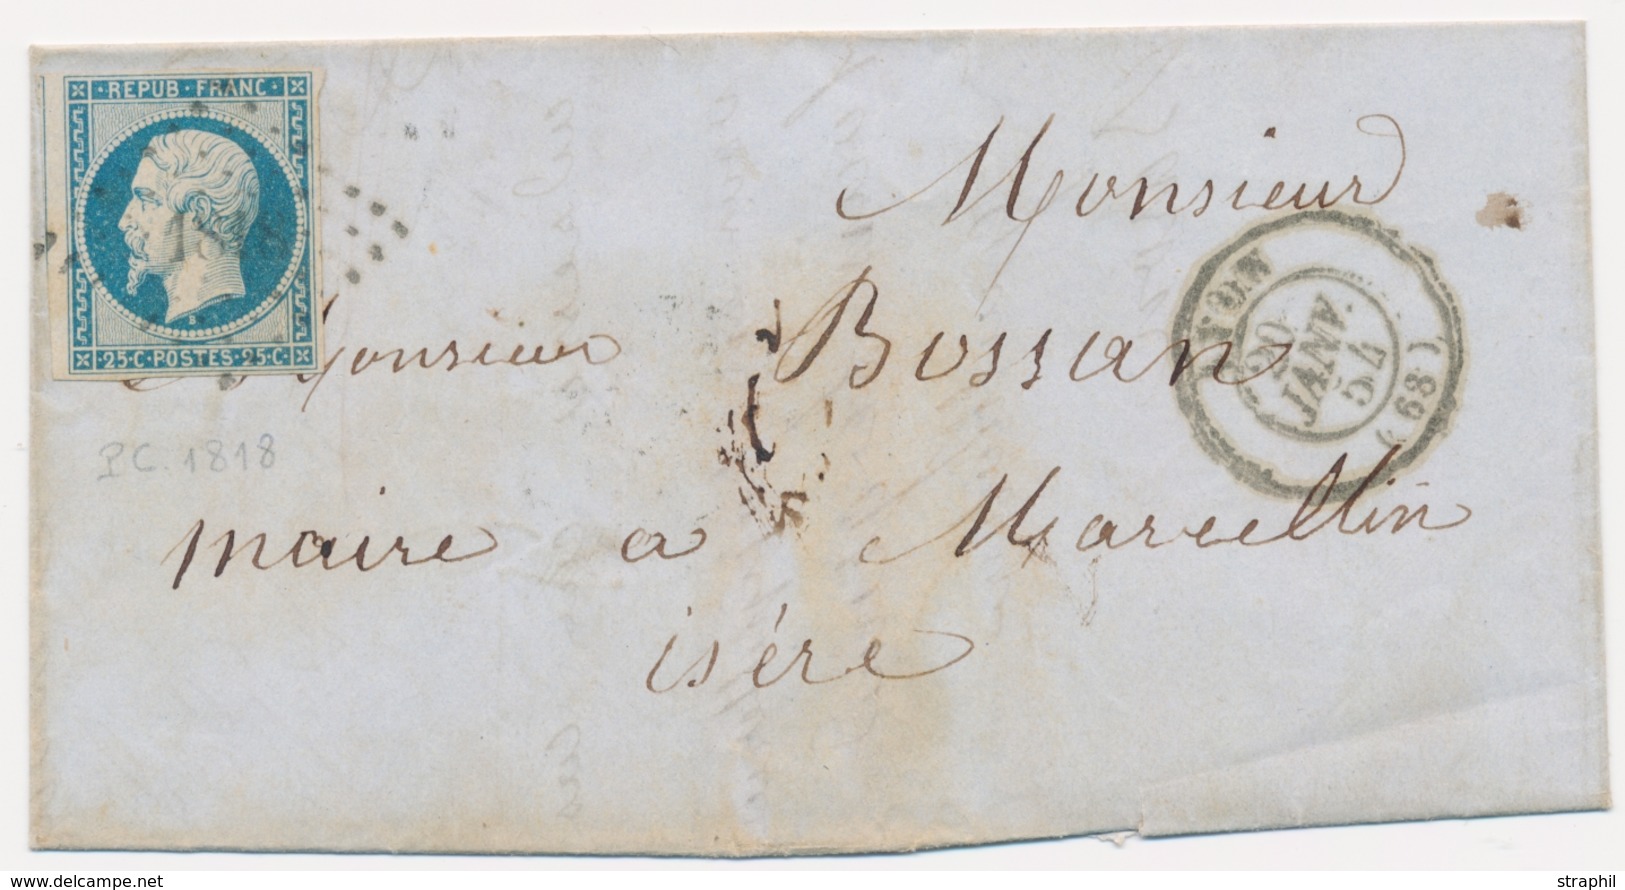 REPUB·FRANC·
181
25·C·POSTES·25·C·
Monsieur
Monsieur Bossan
LYON
20
JANV.
54
(68)
PC. 1818
maire a Marcellin
isère
delcampe.net
straphil